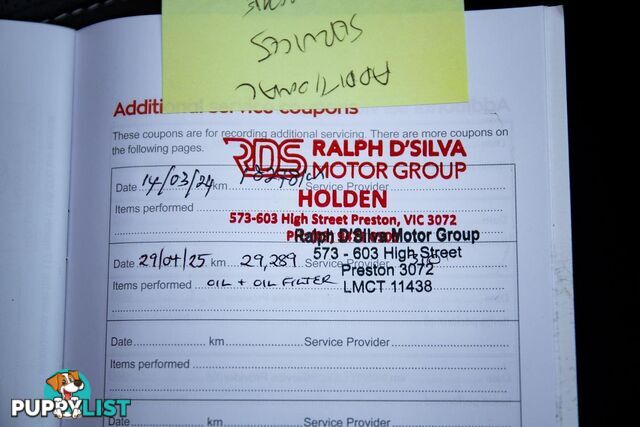 ADDITIONAL
SERVICES
Additional service coupons
These coupons are for recording additional servicing. There are more coupons on
the following pages.
RDS RALPH D'SILVA
MOTOR GROUP
HOLDEN
573-603 High Street Preston, VIC 3072
Date 14/03/24 km Service Provider
Items performed
Ralph D'Silva Motor Group
573 - 603 High Street
Preston 3072
LMCT 11438
Date 29/04/25 29,289 km Service Provider
Items performed OIL + OIL FILTER
Date km Service Provider
Items performed
Date km Service Provider
PUPPYLIST